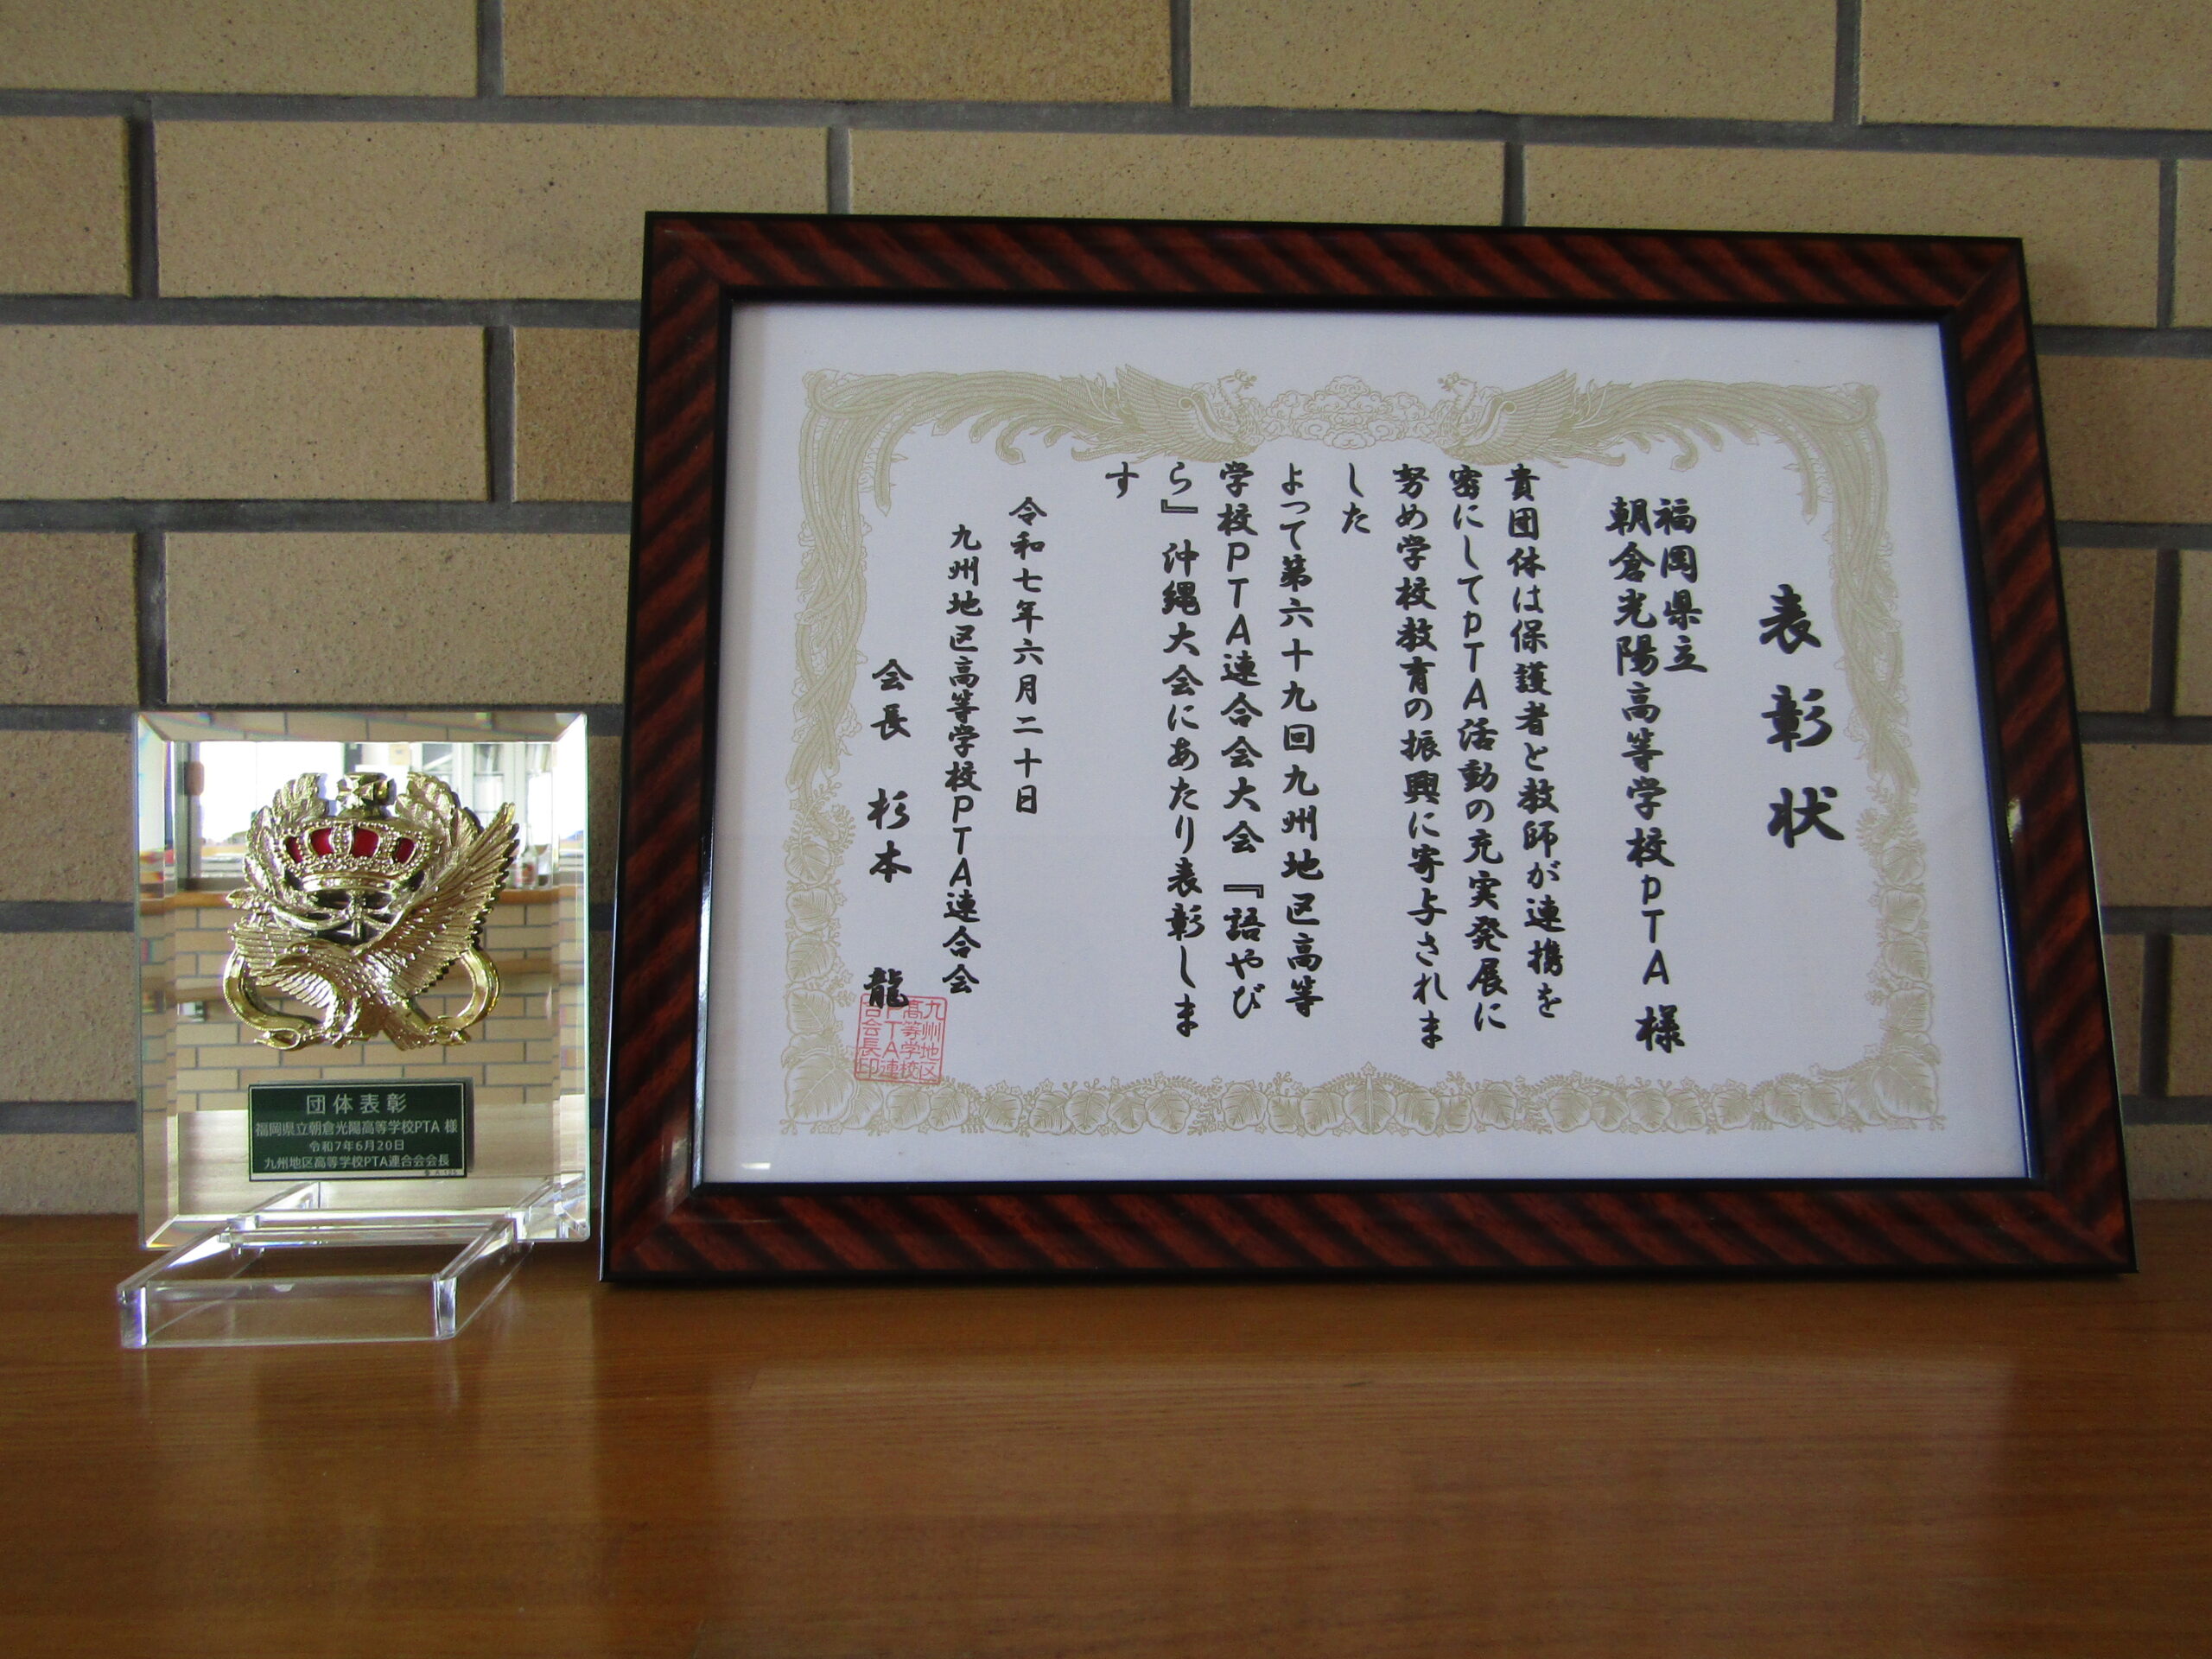 表彰状
福岡県立
朝倉光陽高等学校PTA様
貴団体は保護者と教師が連携を
密にしてPTA活動の充実発展に
努め学校教育の振興に寄与されま
した
よって第六十九回九州地区高等
学校PTA連合会大会『語やび
ら』沖縄大会にあたり表彰しま
す
令和七年六月二十日
九州地区高等学校PTA連合会
会長 杉本 龍
九州地区
高等学校
PTA連
合会長印
団体表彰
福岡県立朝倉光陽高等学校PTA 様
令和7年6月20日
九州地区高等学校PTA連合会会長